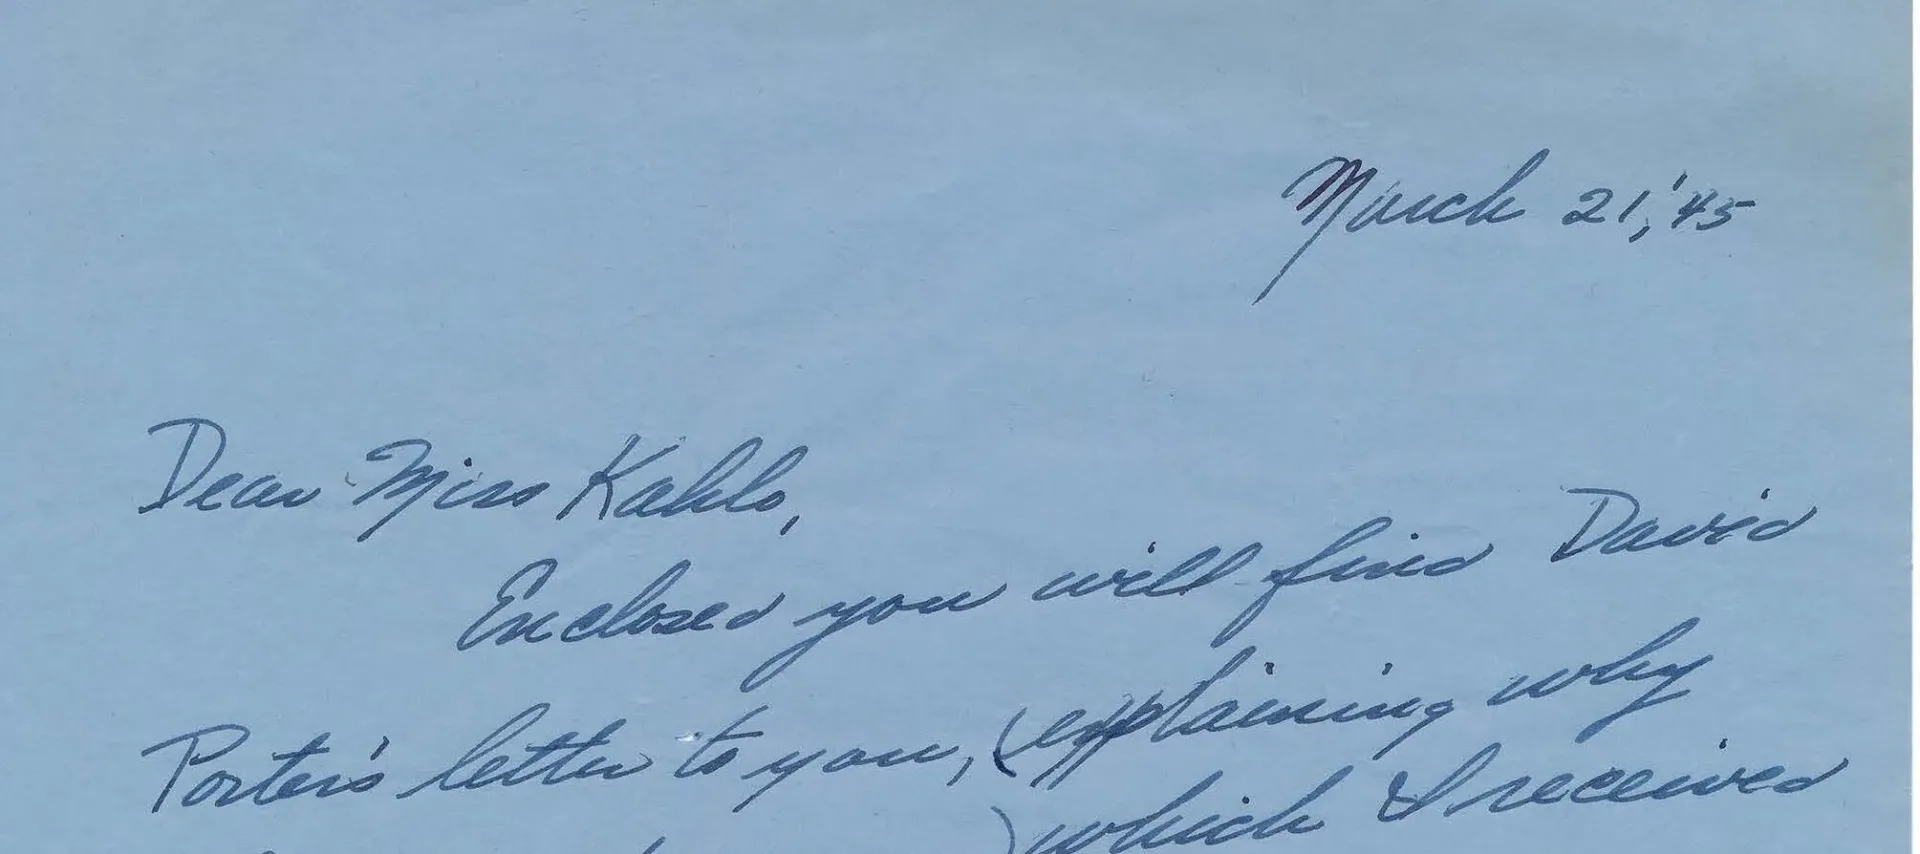 March 21, '45
Dear Miss Kahlo,
Enclosed you will find David
Porter's letter to you, (explaining why
) which I received